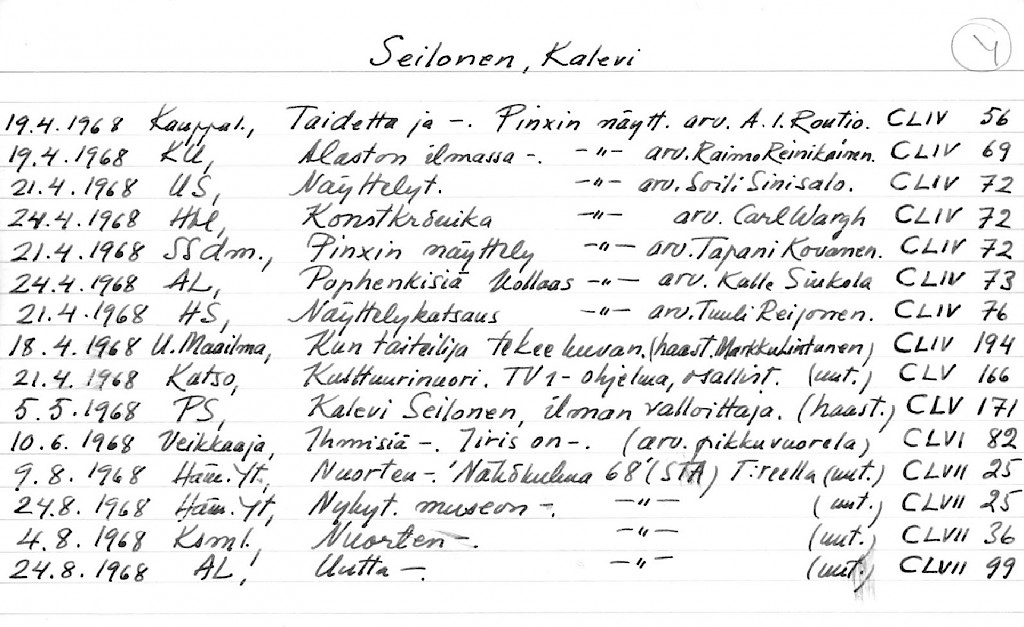 Seilonen, Kalevi
4
19.4.1968 Kauppal., Taidetta ja -. Pinxin näytt. arv. A.I. Routio. CLIV 56
19.4.1968 KU, Alaston ilmassa -. -"- arv. Raimo Reinikainen. CLIV 69
21.4.1968 US, Näyttelyt. -"- arv. Soili Sinisalo. CLIV 72
24.4.1968 Hbl, Konstkrönika -"- arv. Carl Wargh CLIV 72
21.4.1968 SSdm., Pinxin näyttely -"- arv. Tapani Kovanen. CLIV 72
24.4.1968 AL, Pophenkisiä Kollaas -"- arv. Kalle CLIV 73
21.4.1968 HS, Näyttelykatsaus -"- arv. Tuuli Reijonen. CLIV 76
18.4.1968 U. Maailma, Kun taiteilija tekee kuvan. (haast. Markku Lintunen) CLIV 194
21.4.1968 Katso, Kulttuurinuori. TV 1-ohjelma, osallist. (uut.) CLV 166
5.5.1968 PS, Kalevi Seilonen, ilman valloittaja. (haast.) CLV 171
10.6.1968 Veikkaaja, Ihmisiä -. Iiris on -. (arv. pikkuvuorela) CLVI 82
9.8.1968 Häm. Yt, Nuorten -. 'Näkökulma 68' (STA) T:reella (uut.) CLVII 25
24.8.1968 Häm. Yt, Nykyt. museon -. -"- (uut.) CLVII 25
4.8.1968 Ksml., Nuorten -. -"- (uut.) CLVII 36
24.8.1968 AL, Uutta -. -"- (uut.) CLVII 99